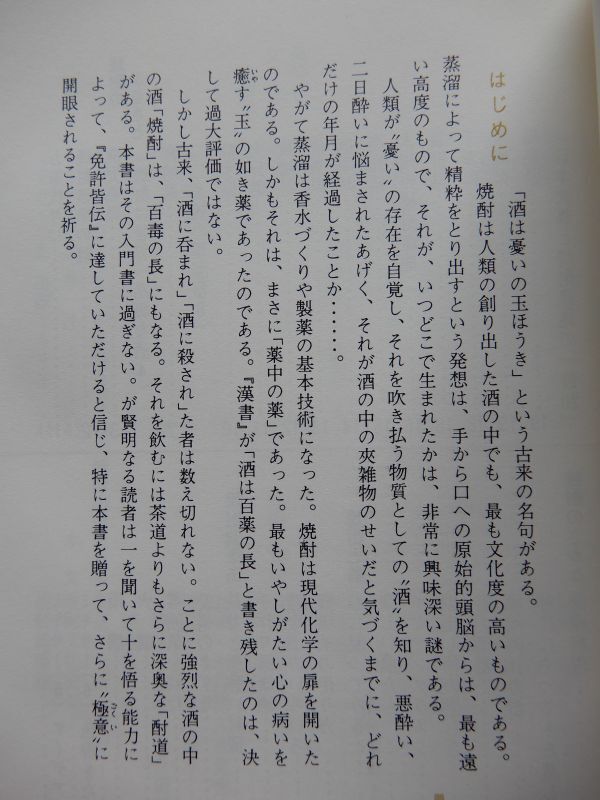 はじめに
「酒は憂いの玉ほうき」という古来の名句がある。
焼酎は人類の創り出した酒の中でも、最も文化度の高いものである。
蒸溜によって精粋をとり出すという発想は、手から口への原始的頭脳からは、最も遠
い高度のもので、それが、いつどこで生まれたかは、非常に興味深い謎である。
人類が〝憂い〟の存在を自覚し、それを吹き払う物質としての〝酒〟を知り、悪酔い、
二日酔いに悩まされたあげく、それが酒の中の夾雑物のせいだと気づくまでに、どれ
だけの年月が経過したことか……。
やがて蒸溜は香水づくりや製薬の基本技術になった。焼酎は現代化学の扉を開いた
のである。しかもそれは、まさに「薬中の薬」であった。最もいやしがたい心の病いを
癒いやす〝玉〟の如き薬であったのである。『漢書』が「酒は百薬の長」と書き残したのは、決
して過大評価ではない。
しかし古来、「酒に呑まれ」「酒に殺され」た者は数え切れない。ことに強烈な酒の中
の酒「焼酎」は、「百毒の長」にもなる。それを飲むには茶道よりもさらに深奥な「酎道」
がある。本書はその入門書に過ぎない。が賢明なる読者は一を聞いて十を悟る能力に
よって、『免許皆伝』に達していただけると信じ、特に本書を贈って、さらに〝極意ごくい〟に
開眼されることを祈る。